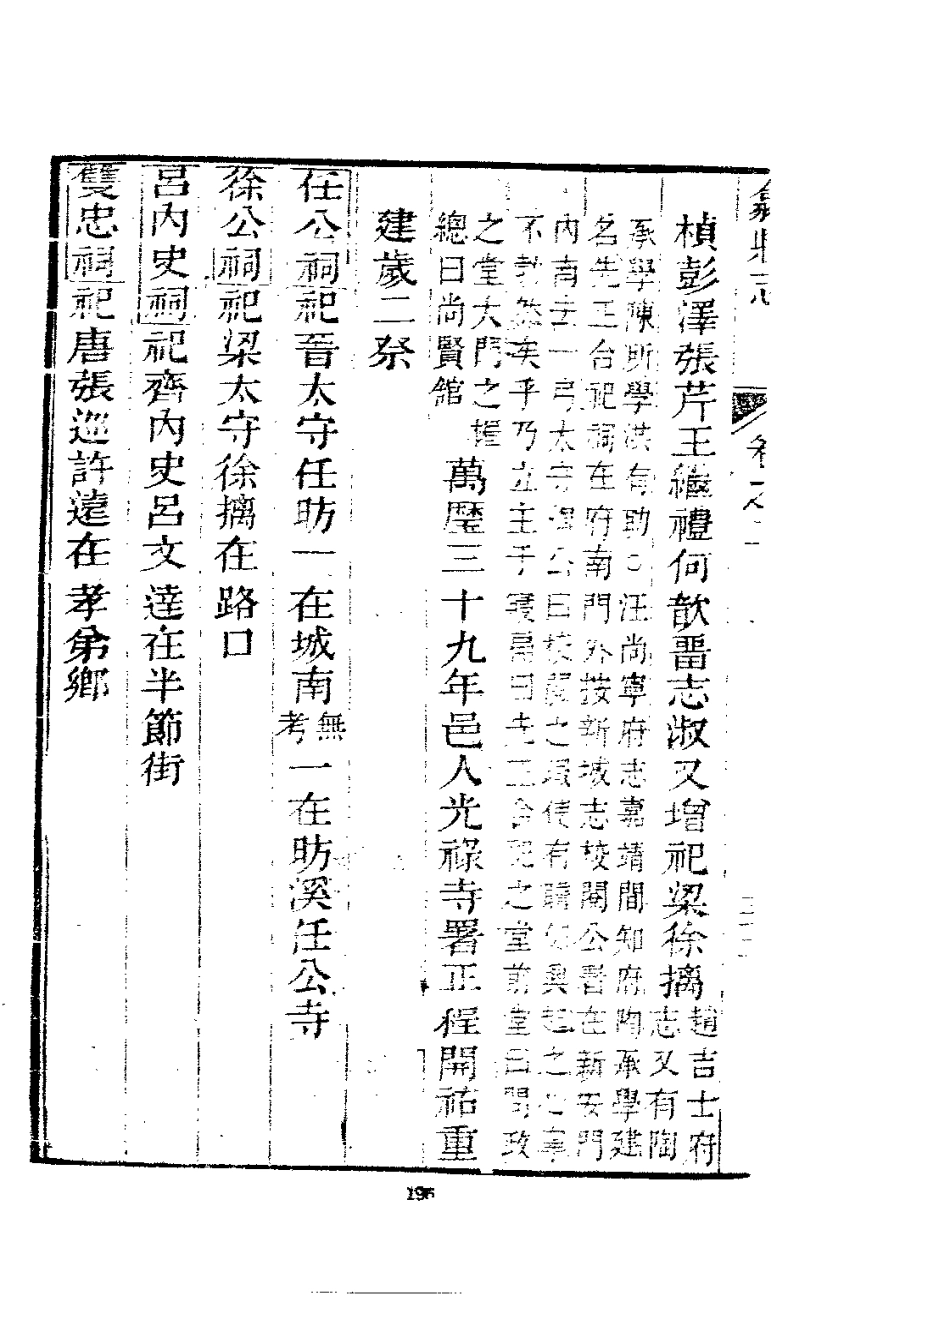 歙縣志 卷之二
楨彭澤張芹王繼禮何歆留志淑又增祀梁徐摛趙吉士府
志又有陶
承學陳所學洪有助 汪尚寧府志嘉靖間知府陶承學建
名先正合祀祠在府南門外按新城志校閱公署在新安門
內南去一弓太守 公曰校 之場使有 興起之
不 矣乎乃立主于寢扁曰先正合祀之堂前堂曰問政
之堂大門之楣
總曰尚賢館
萬歷三十九年邑人光祿寺署正程開祐重
建歲二祭
任公祠祀晉太守任昉一在城南無考一在昉溪任公寺
徐公祠祀梁太守徐摛在路口
呂內史祠祀齊內史呂文達在半節街
雙忠祠祀唐張巡許遠在孝弟鄉
195